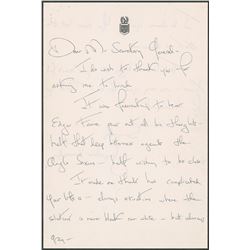 Dear Mr. Secretary General -
I do wish to thank you for
asking me to lunch.
It was fascinating to hear
put out all his thoughts -
half that deep bitterness against the
Anglo Saxons - half wishing to be close.
It made me think how complicated
your life is - always situations where the
solution is never black or white - but always
gray -